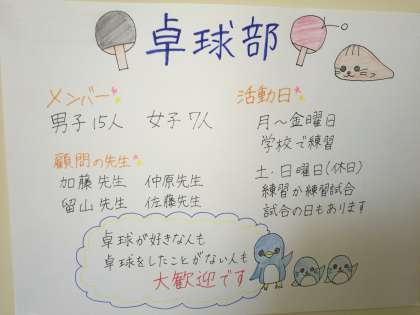 卓球部
メンバー
男子15人 女子7人
顧問の先生
加藤先生 仲原先生
留山先生 佐藤先生
活動日
月～金曜日
学校で練習
土・日曜日(休日)
練習か練習試合
試合の日もあります
卓球が好きな人も
卓球をしたことがない人も
大歓迎です